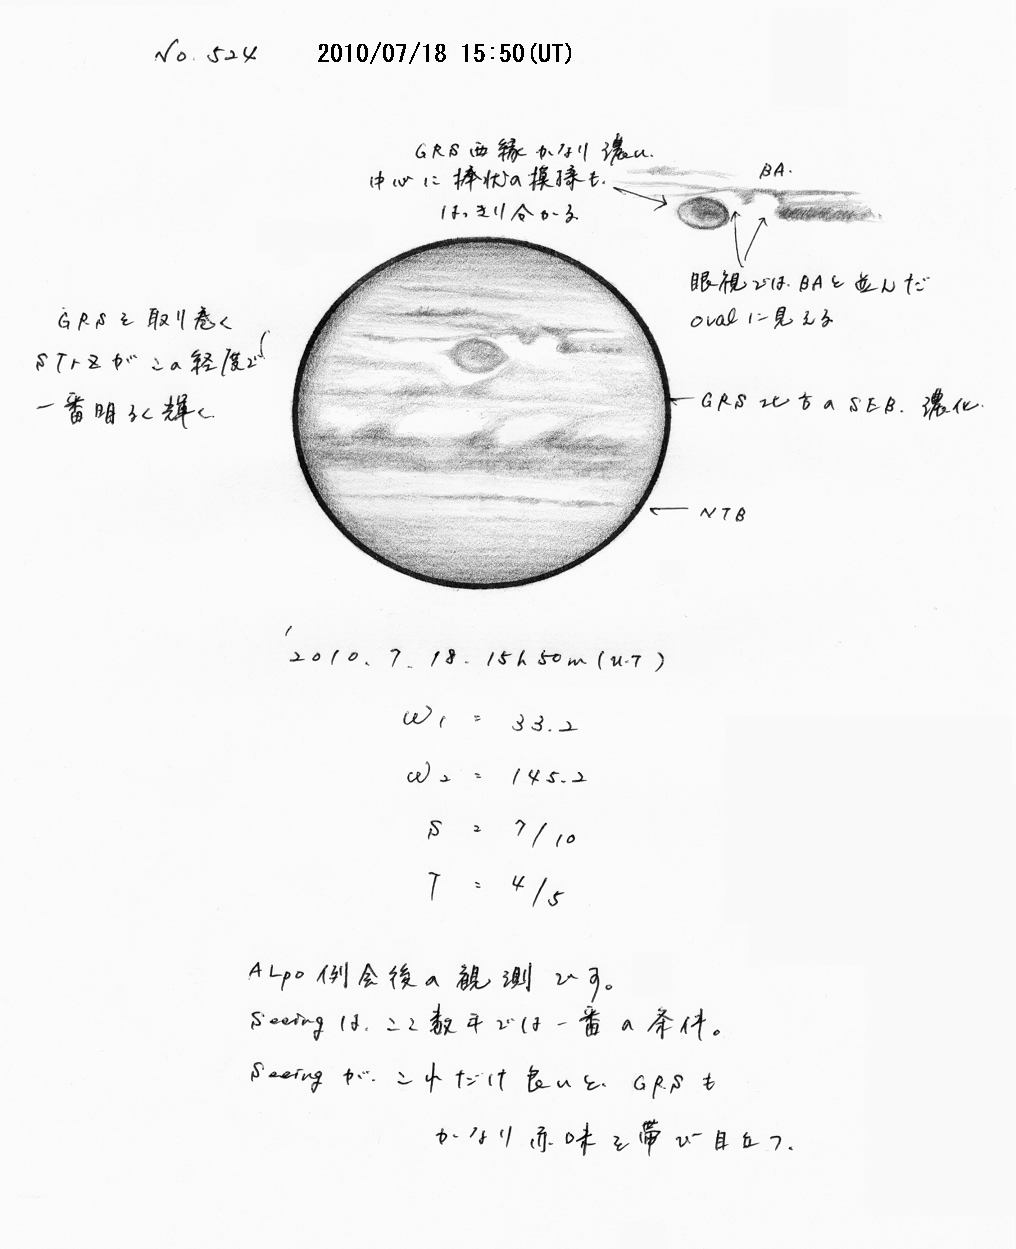 No. 524
2010/07/18 15:50(UT)
GRS西縁かなり濃い.
中心に棒状の模様も.
はっきり分かる
BA.
眼視では.BAと並んだ
ovalに見える
GRSを取り巻く
STrZがこの経度で
一番明るく輝く.
GRS北方のSEB.濃化.
NTB
'2010.7.18.15h50m(U.T)
ω1 = 33.2
ω2 = 145.2
S = 7/10
T = 4/5
ALPO例会後の観測です。
Seeingは、ここ数年では一番の条件。
Seeingが、これだけ良いと、GRSも
かなり赤味を帯び目立つ.